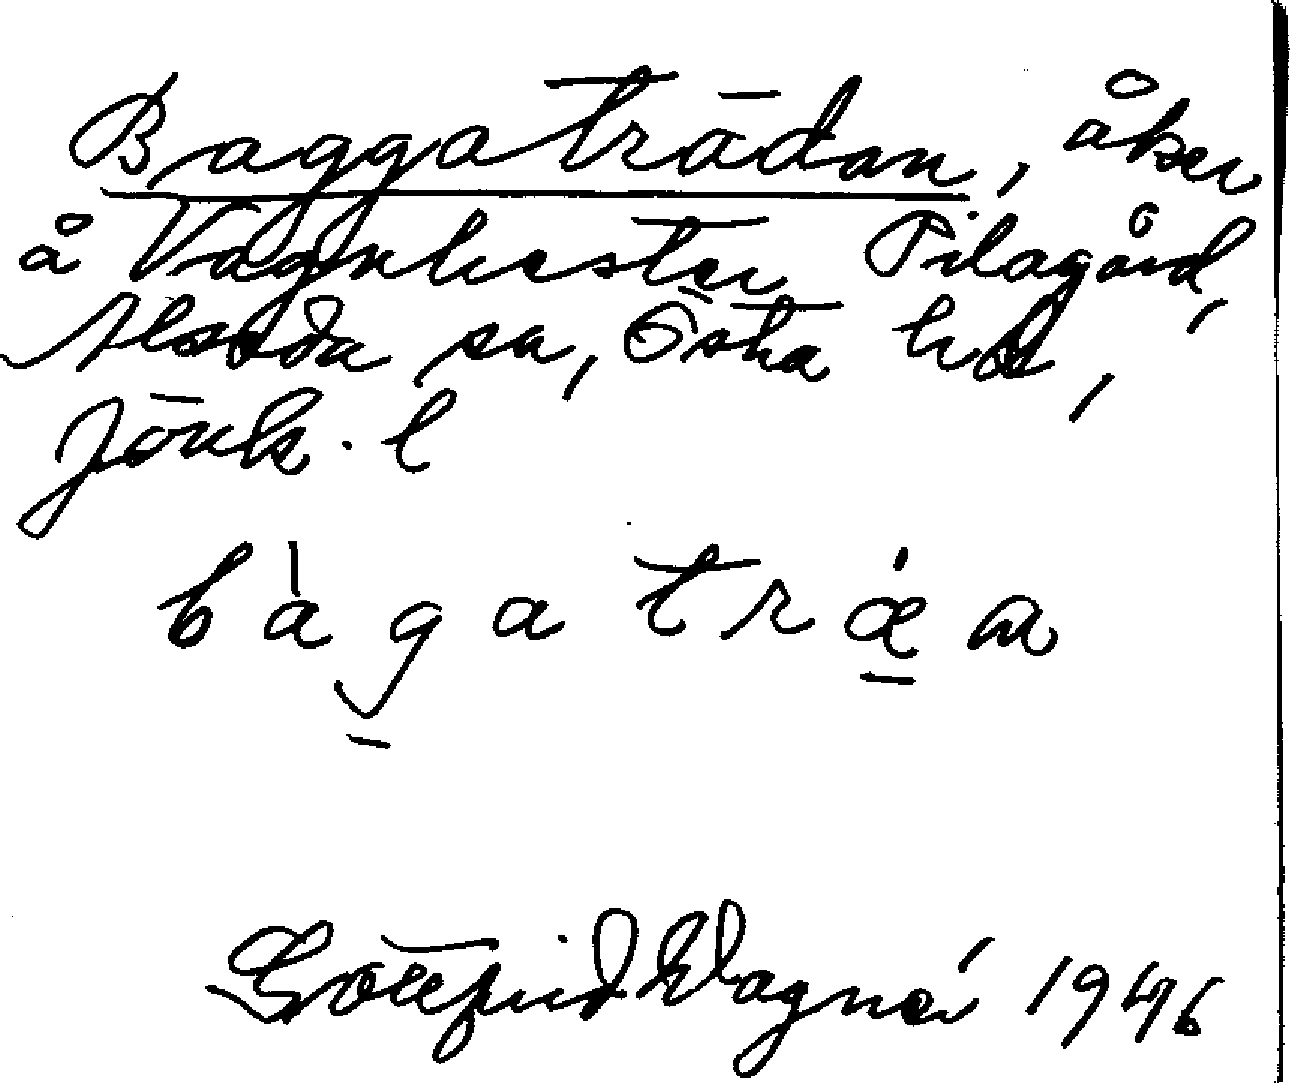 Baggaträdan, åker
å Vagnhester Pilagård,
Alseda sn, Östra hd,
Jönk. l
bàgatræ̱a
Gottfrid Wagnér 1946